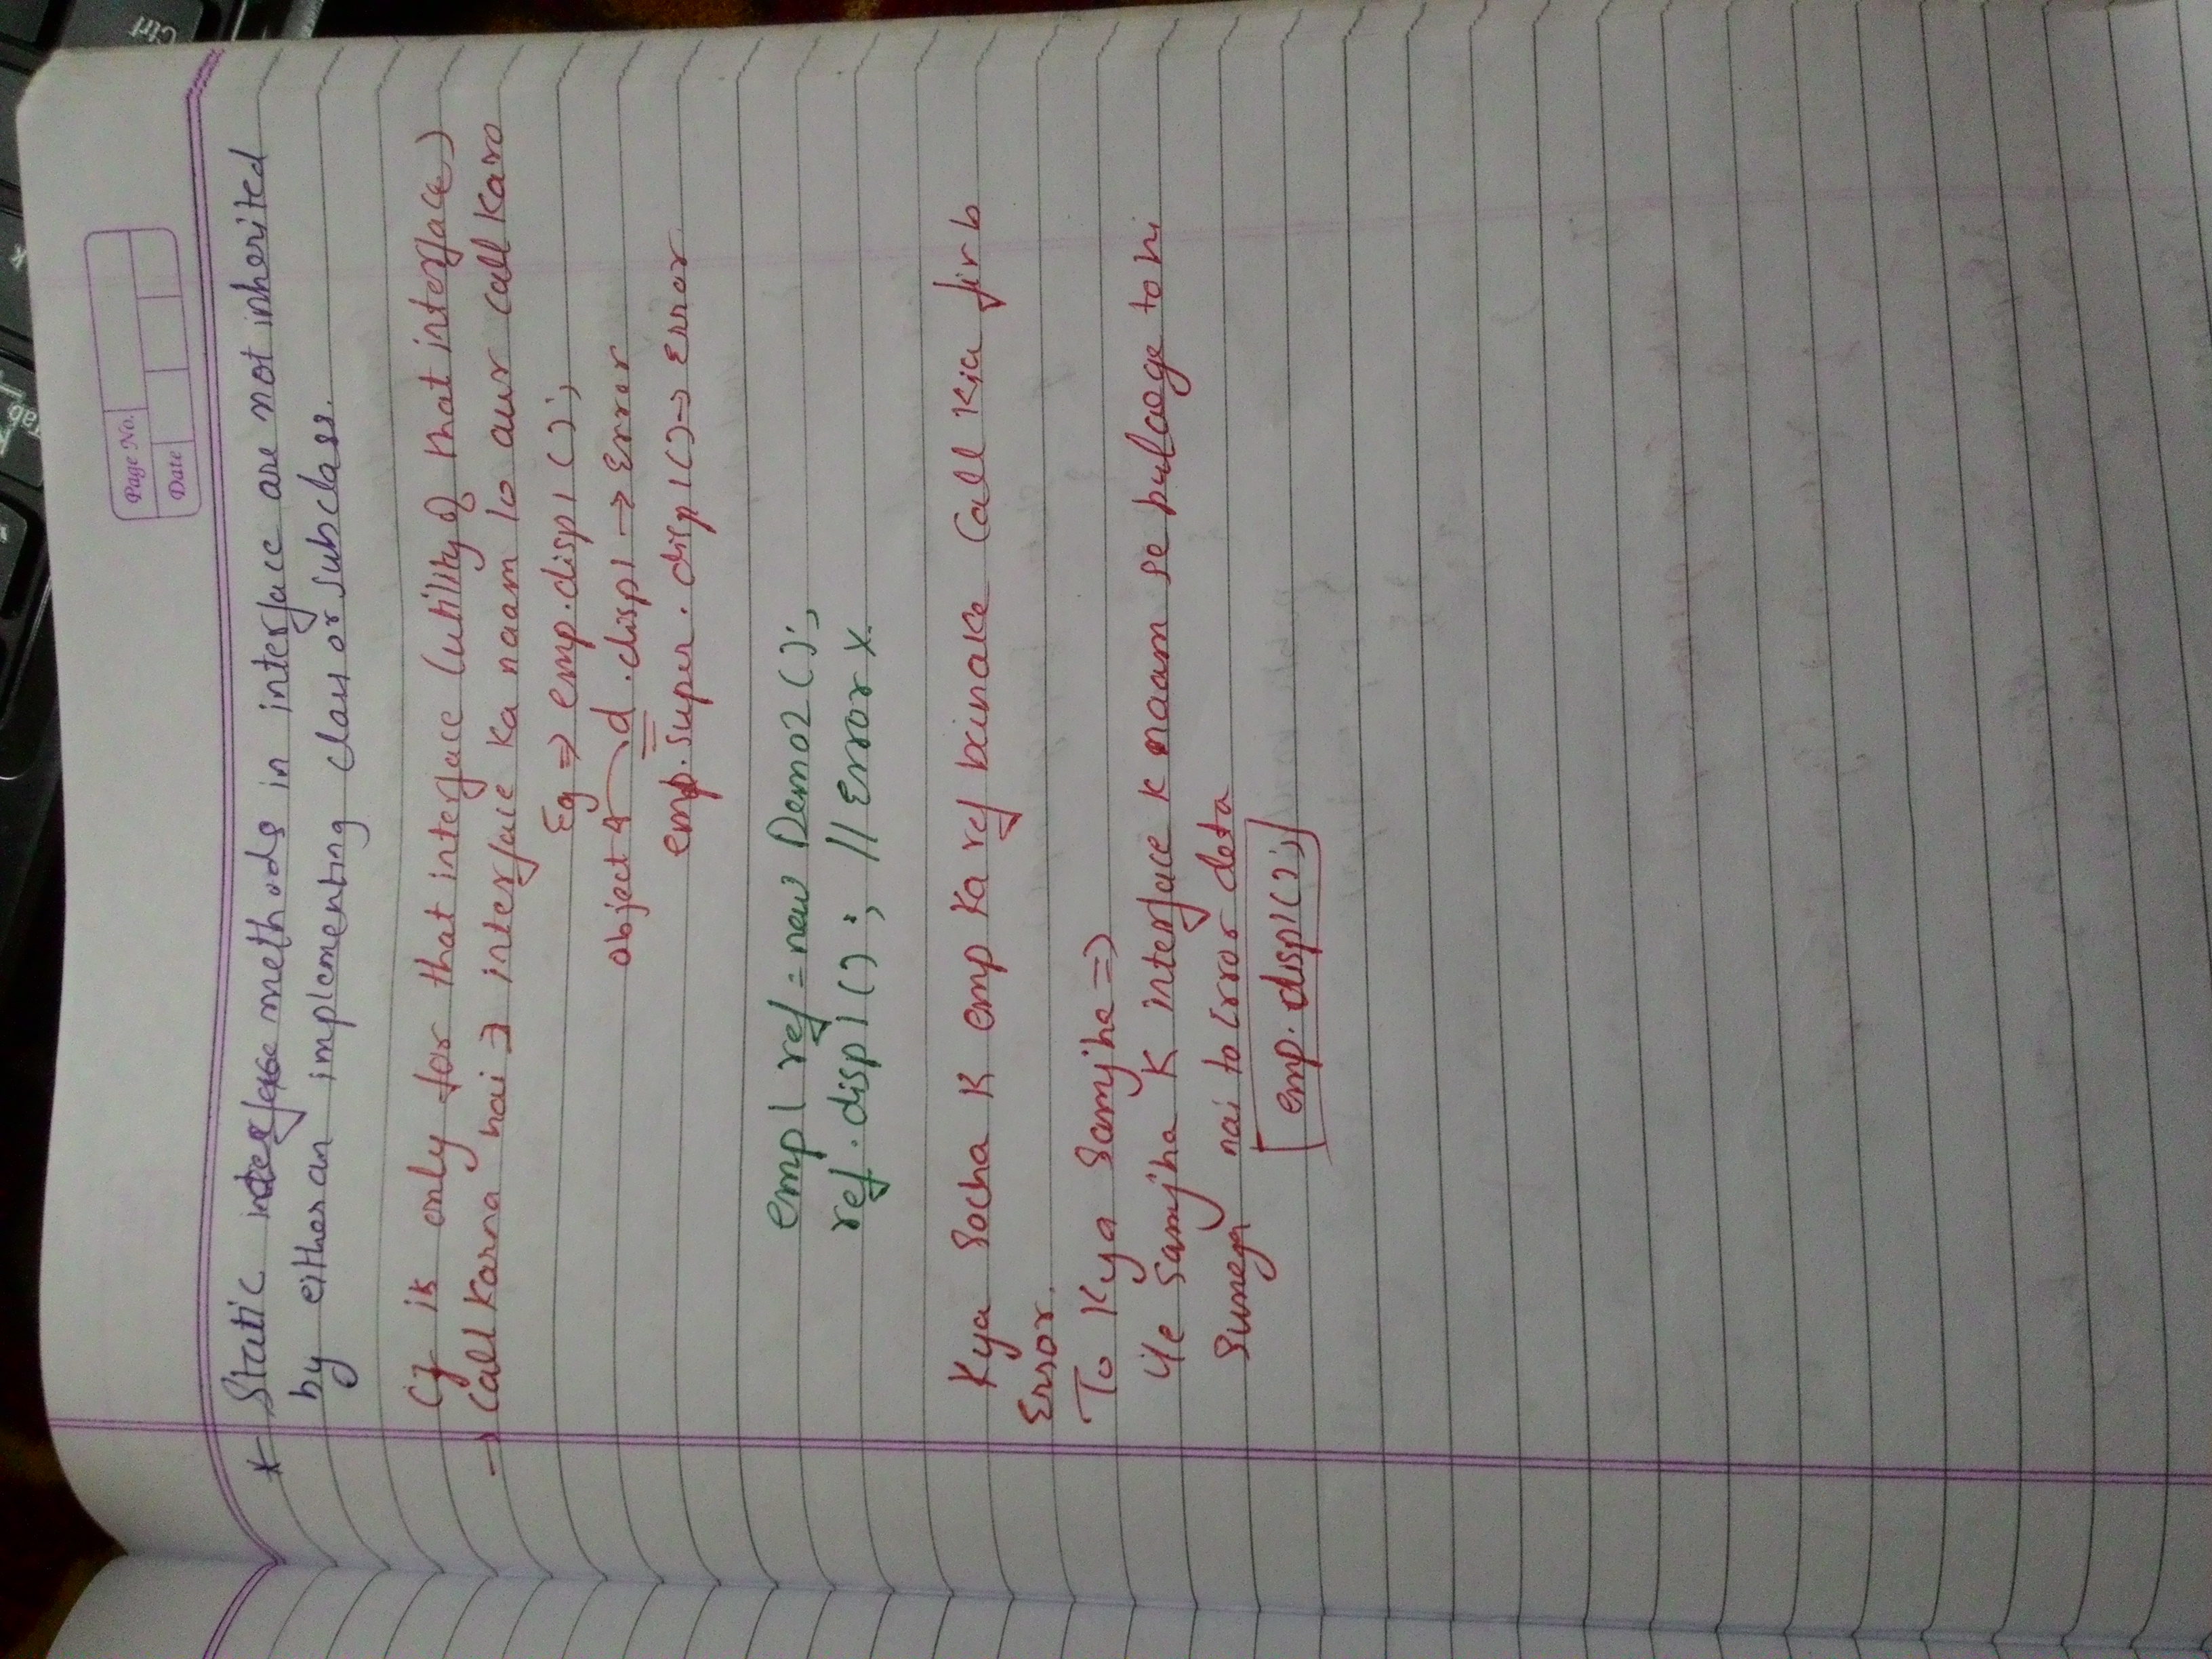 Tab
k
Ctrl
Page No.
Date
* Static methods in interface are not inherited
by either an implementing class or subclass.
Cz is only for that interface (utility of that interface)
→ Call Karna hai ⇒ interface Ka naam lo aur call Karo
Eg ⇒ emp.disp1();
object d.disp1 → Error
emp.super.disp1() → Error
emp1 ref = new Demo2();
ref.disp1(); // Error x.
Kya Socha K emp Ka ref banake Call Kia fir b
Error.
To Kya Samjhe ⇒
Ye Samjha K interface K naam se bulaoge to hi
Sunega nai to Error deta
emp.disp1();